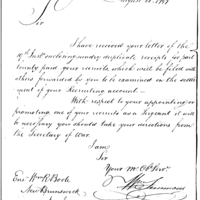 August 21 1799
Sir
I have received your letter of the
19th Inst. enclosing sundry duplicate receipts for pay
bounty paid your recruits, which will be filed with
others forwarded by you to be examined on the settle
ment of your Recruiting account.
With respect to your appointing or
promoting one of your recruits as a Sergeant it will
be necessary you should take your directions from
the Secretary of War.
I am
Sir
Your Mo. Ob. Serv.
Wm Simmons
Ens. Wm R. Boote
New Brunswick